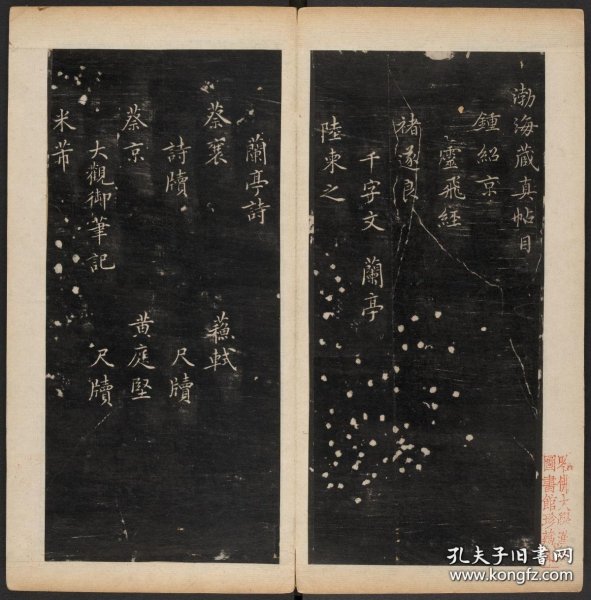 渤海藏真帖目
鍾紹京
靈飛經
褚遂良
千字文 蘭亭
陸柬之
蘭亭詩
蔡襄 蘇軾
詩牘 尺牘
蔡京 黄庭堅
大觀御筆記 尺牘
米芾
圖書館珍藏
孔夫子旧书网
www.kongfz.com